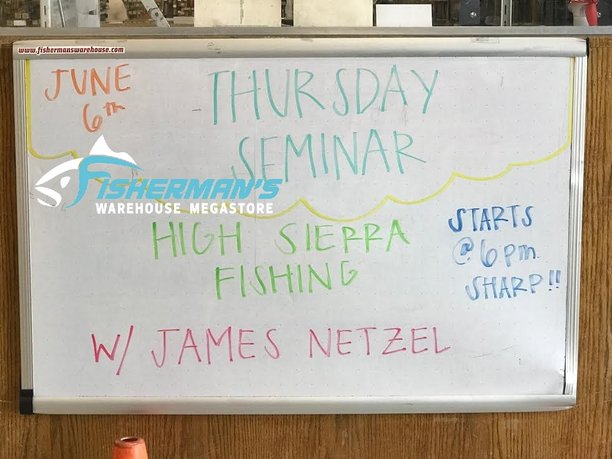 www.fishermanswarehouse.com
JUNE
6th
THURSDAY
SEMINAR
FISHERMAN'S
WAREHOUSE MEGASTORE
HIGH SIERRA
FISHING
STARTS
@ 6pm
SHARP!!
W/ JAMES NETZEL